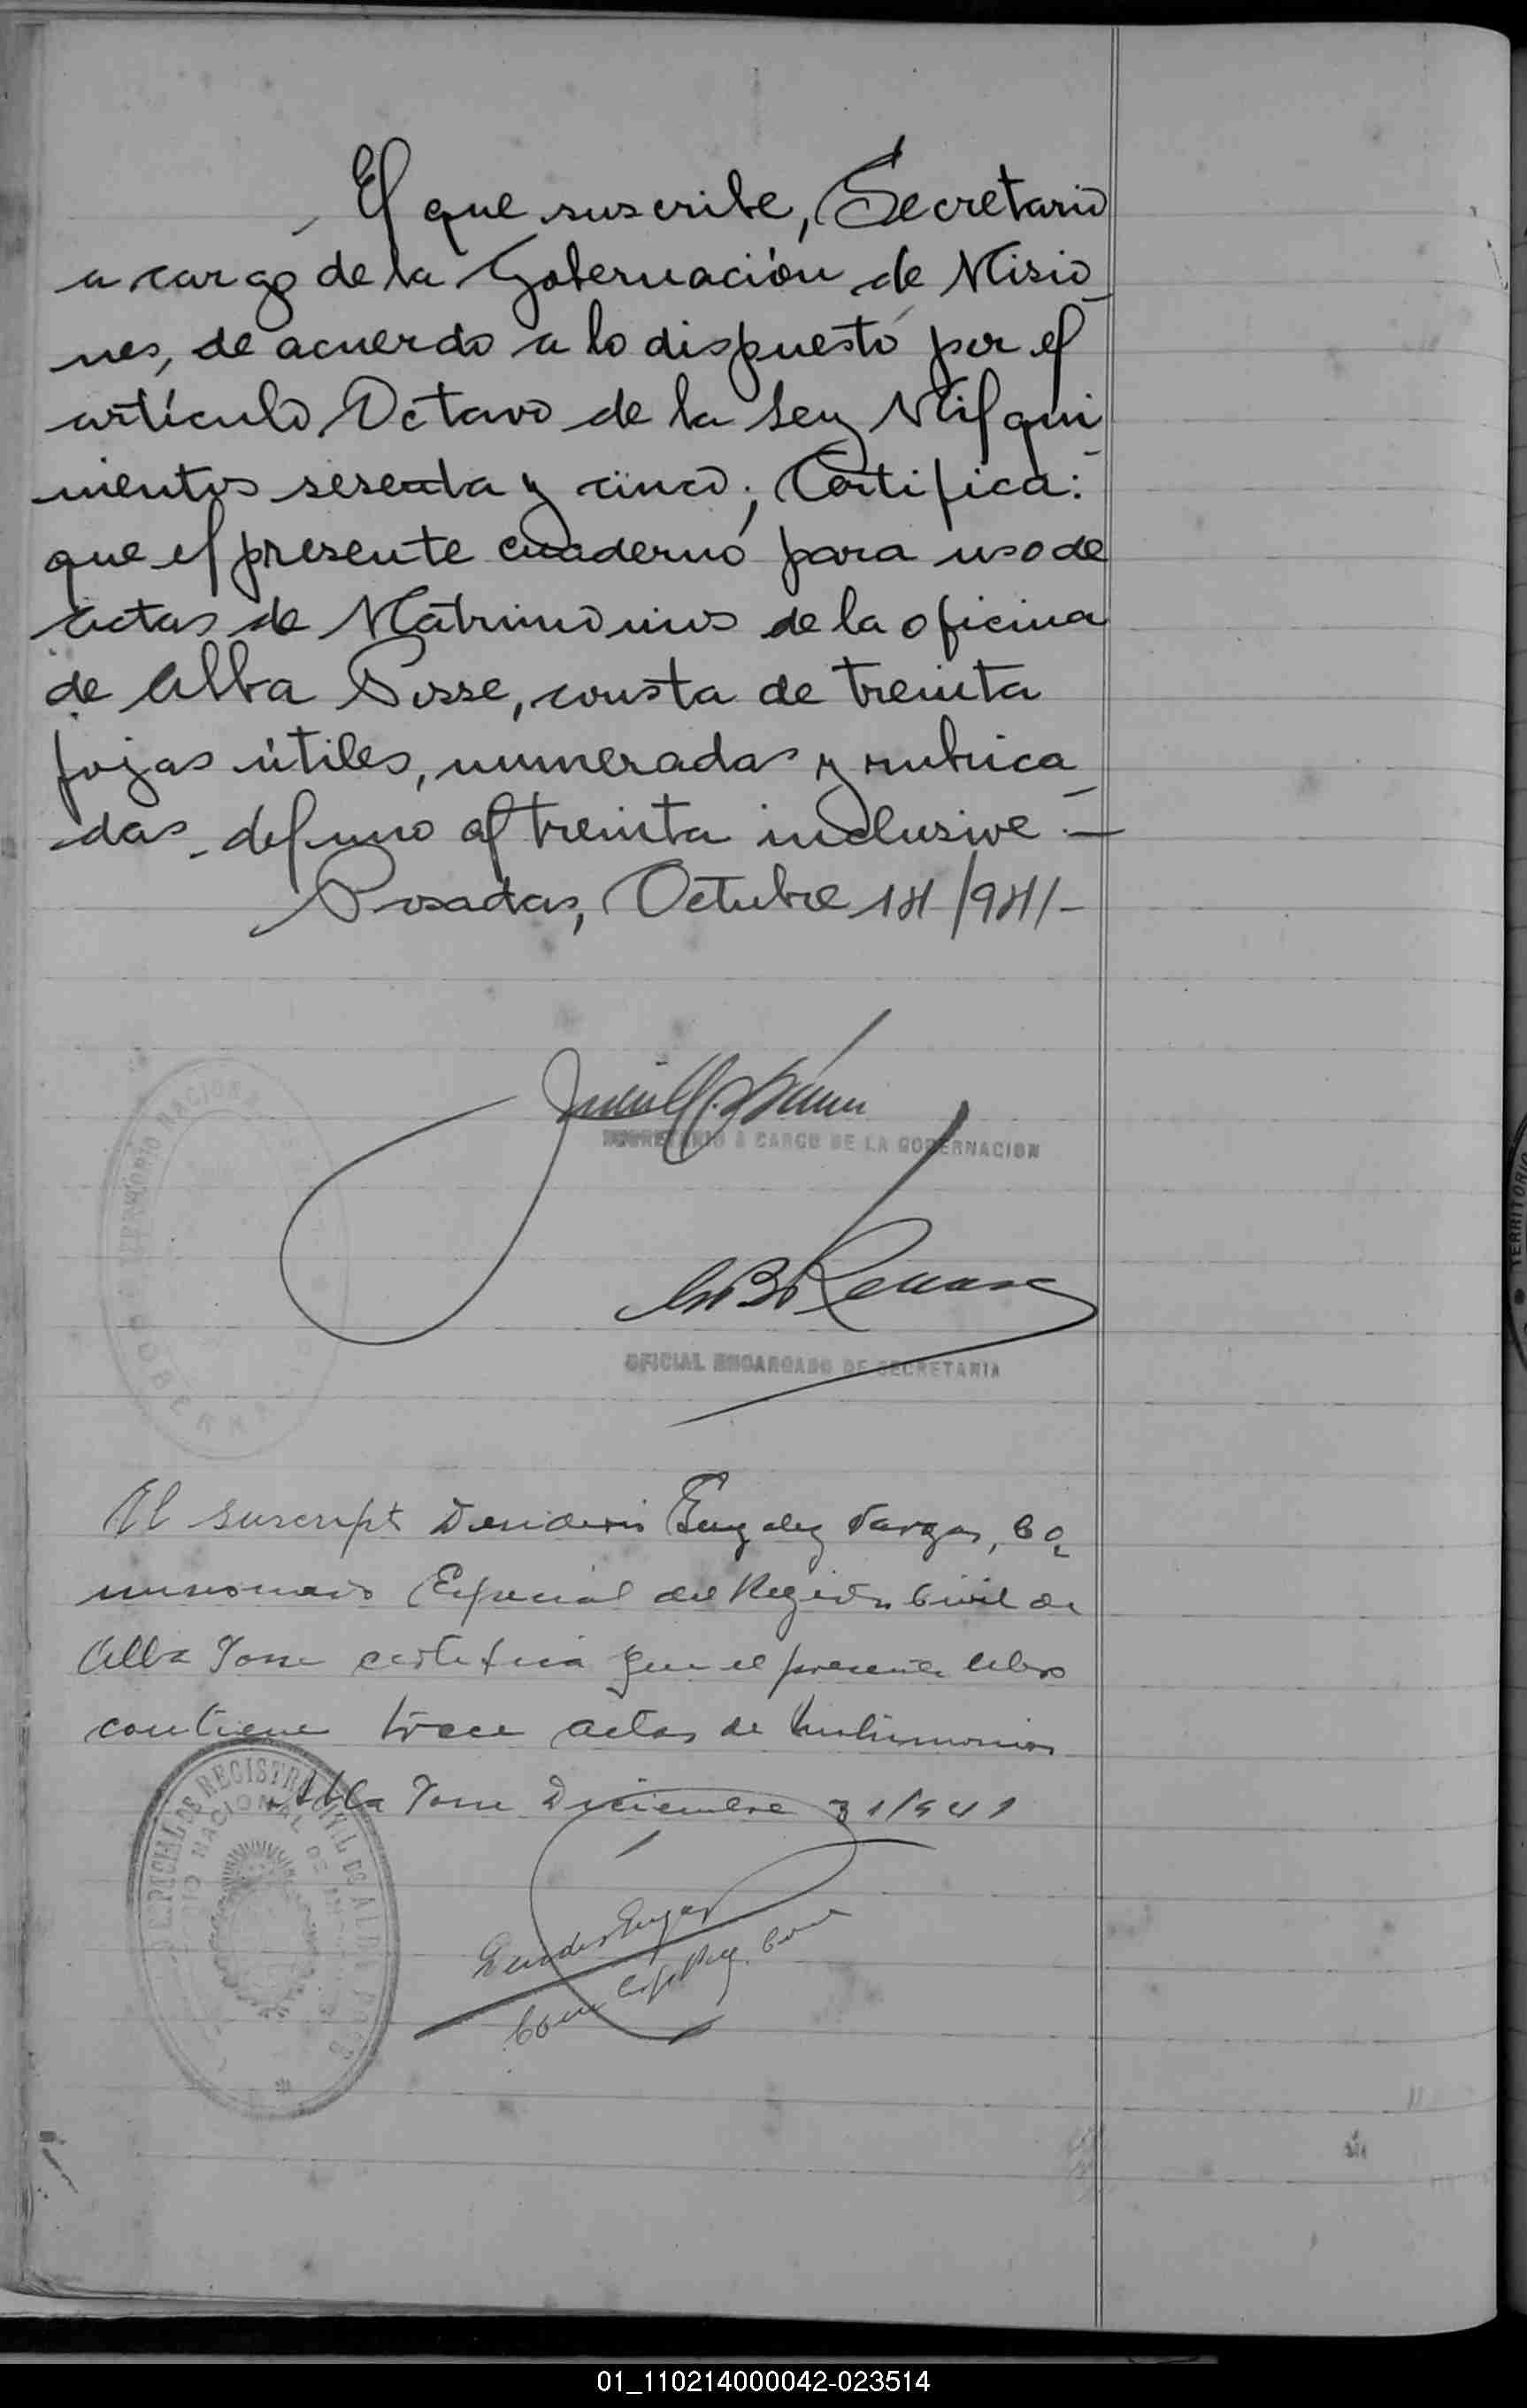 El que suscribe, Secretario
a cargo de la Gobernación de Misio_
nes, de acuerdo a lo dispuesto por el
artículo Octavo de la Ley Mil qui_
nientos sesenta y cinco; Certifica:
que el presente cuaderno para uso de
actas de Matrimonios de la oficina
de Alba Posse, consta de treinta
fojas útiles, numeradas y rubrica_
das del uno al treinta inclusive.—
Posadas, Octubre 14/941-
SECRETARIO A CARGO DE LA GOBERNACION
OFICIAL ENCARGADO DE SECRETARIA
TERRITORIO NACIONAL
GOBERNA
El suscript Desiderio Vargas, Co_
misionado Especial del Registro Civil de
Alba Posse certifica que el presente libro
contiene trece actas de Matrimonios
Alba Posse Diciembre 31/941
ESPECIAL DE REGISTRO CIVIL DE ALBA POSSE
NACIONAL DE
TERRITORIO
01_110214000042-023514